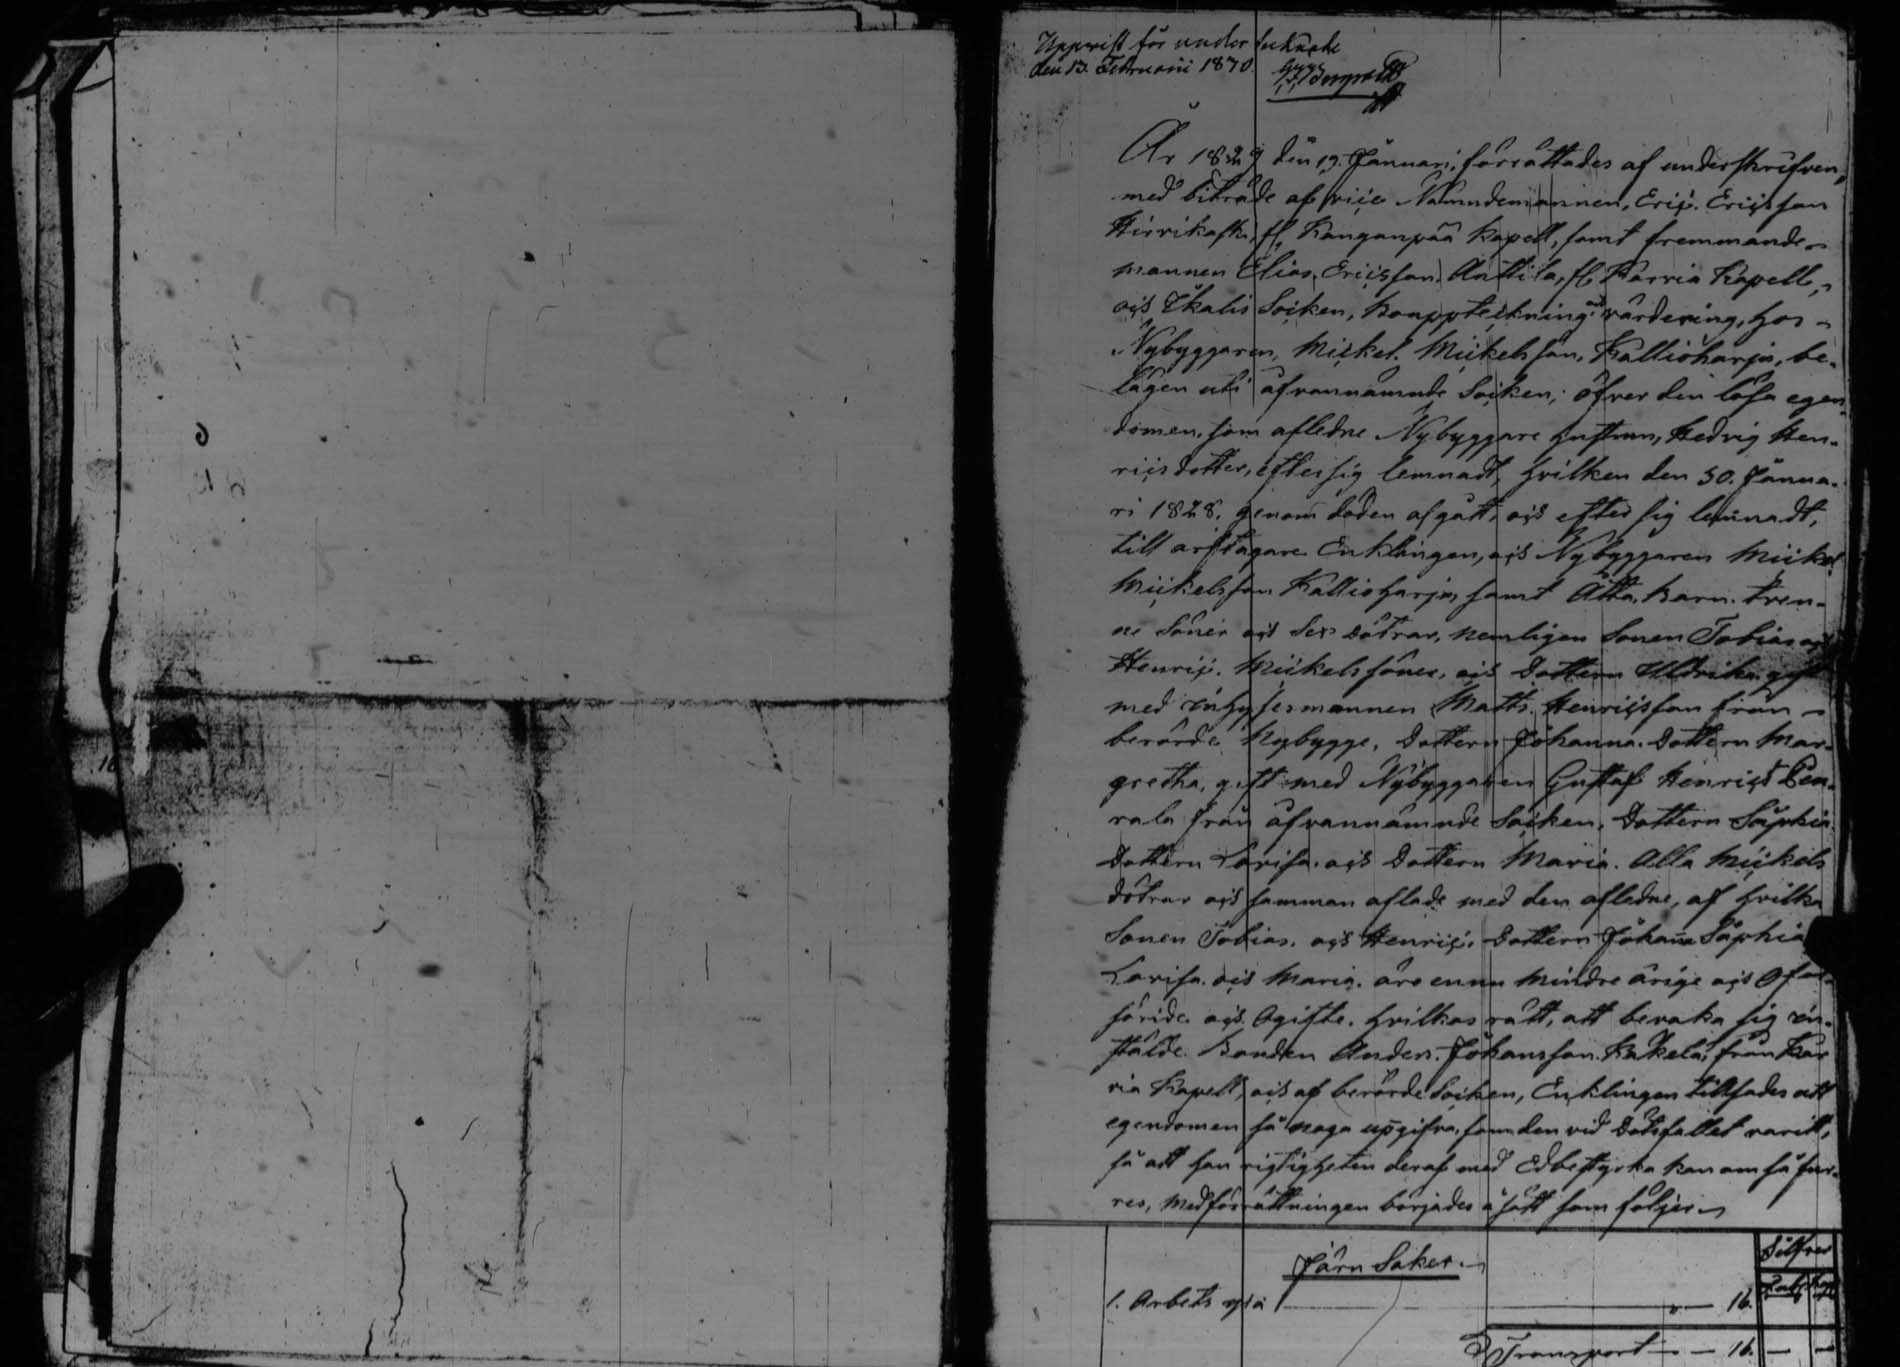 den 13. Februarii 1830
År 1829 den 19. Januari, förrättades af underskrifven,
med biträde af vice Nämndemannen, Eric. Ericsson
fr Kanganpää Kapell, samt fremmande
mannen Elias. Ericsson. Anttila, fr Karvia Kapell,
och Ikalis Socken, Bouppteckning och värdering, hos
Nybyggaren, Mickel. Mickelsson. Kallioharju, be-
lägen uti åfvannämnde Socken; öfver den lösa egen-
domen, som aflidne Nybyggare hustrun, Hedvig Hen-
ricsdotter, efter sig lemnadt, hvilken den 30. Janua-
ri 1828. genom döden afgått, och efter sig lemnadt,
till arftagare Enklingen, och Nybyggaren Mickel
Mickelsson Kallioharju, samt Åtta. barn. tven-
ne Söner och Sex Dötrar, nemligen Sonen Tobias och
Henric. Mickelsöner, och Dottern Uldrika. gift
med inhysesmannen Matts. Henricsson från
berörde Nybygge, Dottern Johanna. Dottern Mar-
gretha, gift med Nybyggaren Gustaf Henricss
från åfvannämnde Socken, Dottern Sophia
Dottern Lovisa. och Dottern Maria. Alla Mickels
dötrar och samman aflade med den aflidne, af hvilka
Sonen Tobias. och Henric. Dottern Johanna Sophia
Lovisa. och Maria. äro ennu mindre årige och Ofor-
sörjde. och Ogifte. hvilkas rätt, att bevaka sig in-
stälde. Bonden Anders. Johansson. från Kar
via Kapell, och af berörde Socken, Enklingen tillsades att
egendomen så noga upgifva, som den vid Dödsfallet varitt,
så att han rigtigheten deraf med Ed bestyrka kan om så
res, med förrättningen börjades å sätt som följer
Silfver
Järn Saker.
Rub Kop
1. Arbets yxa 16.
Transport 16.